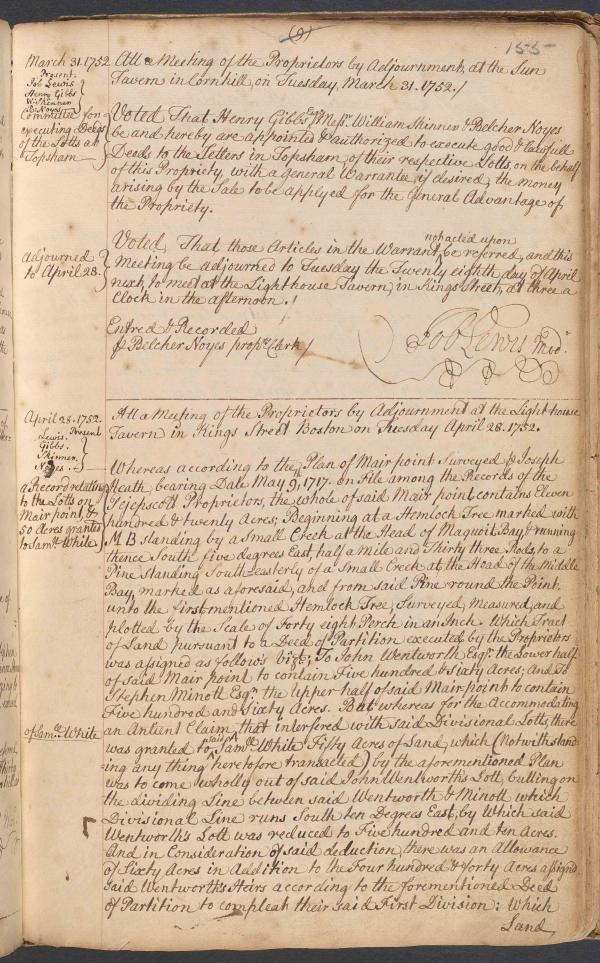 (9)
155
March 31. 1752
Present.
Job Lewis
Henry Gibbs
Wm Skinner
B. Noyes
Committee for
executing Deeds
of the Lotts at
Topsham
Att a Meeting of the Proprietors by Adjournment, at the Sun
Tavern in Cornhill, on Tuesday, March 31. 1752. /
Voted That Henry Gibbs Esqr Messrs William Skinner & Belcher Noyes
be and hereby are appointed & authorized to execute good & lawfull
Deeds to the Setlers in Topsham, of their respective Lotts, on the behalf
of this Propriety, with a General Warrantee, if desired, the money
arising by the Sale to be applyed for the General Advantage of
the Propriety.
Adjourned
to April 28.
Voted, That those Articles in the Warrant not acted upon be referred, and this
Meeting be adjourned to Tuesday the Twenty eighth day of April
next, to meet at the Light house Tavern, in Kings Street, at three a
Clock in the afternoon. /
Entred & Recorded
p Belcher Noyes proprs Clerk /
Job Lewis Modr.
April 28. 1752.
Present
Lewis.
Gibbs.
Skinner.
Noyes
a Record relating
to the Lotts on
Mair point, &
50 Acres granted
to Saml. White
Att a Meeting of the Proprietors by Adjournment at the Light-house
Tavern in Kings Street Boston on Tuesday April 28. 1752.
Whereas according to the Plan of Mair point Surveyed p Joseph
Heath, bearing Date May 9, 1717. on File among the Records of the
Pejepscott Proprietors, the whole of said Mair point contains Eleven
hundred & twenty Acres; Beginning at a Hemlock Tree marked with
M B standing by a Small Creek at the Head of Maquoit Bay & running
thence South five degrees East half a mile and Thirty three Rods, to a
Pine standing South-easterly of a Small Creek at the Head of the Middle
Bay, marked as aforesaid, and from said Pine round the Point,
unto the first mentioned Hemlock Tree, Surveyed, Measured, and
plotted by the Scale of Forty eight Perch in an Inch. Which Tract
of Land pursuant to a Deed of Partition executed by the Proprietors
was assigned as follows vizt; To John Wentworth Esqr. the Lower half
of said Mair point to contain Five hundred & Sixty Acres; And To
Stephen Minott Esqr. the upper half of said Mair point to contain
Five hundred and Sixty Acres. But whereas for the Accommodating
an Antient Claim, that interfered with said Divisional Lott, there
of Saml. White
was granted to said Saml. White Fifty Acres of Land, which (Notwithstand-
ing any thing heretofore transacted) by the aforementioned Plan
was to come wholly out of said John Wentworths Lott, butting on
the dividing Line between said Wentworth & Minott which
Divisional Line runs South ten Degrees East, by Which said
Wentworth's Lott was reduced to Five hundred and ten Acres.
And in Consideration of said deduction, there was an Allowance
of Sixty Acres in Addition to the Four hundred & forty Acres assigned
said Wentworths Heirs according to the forementioned Deed
of Partition to compleat their said First Division: Which
Land